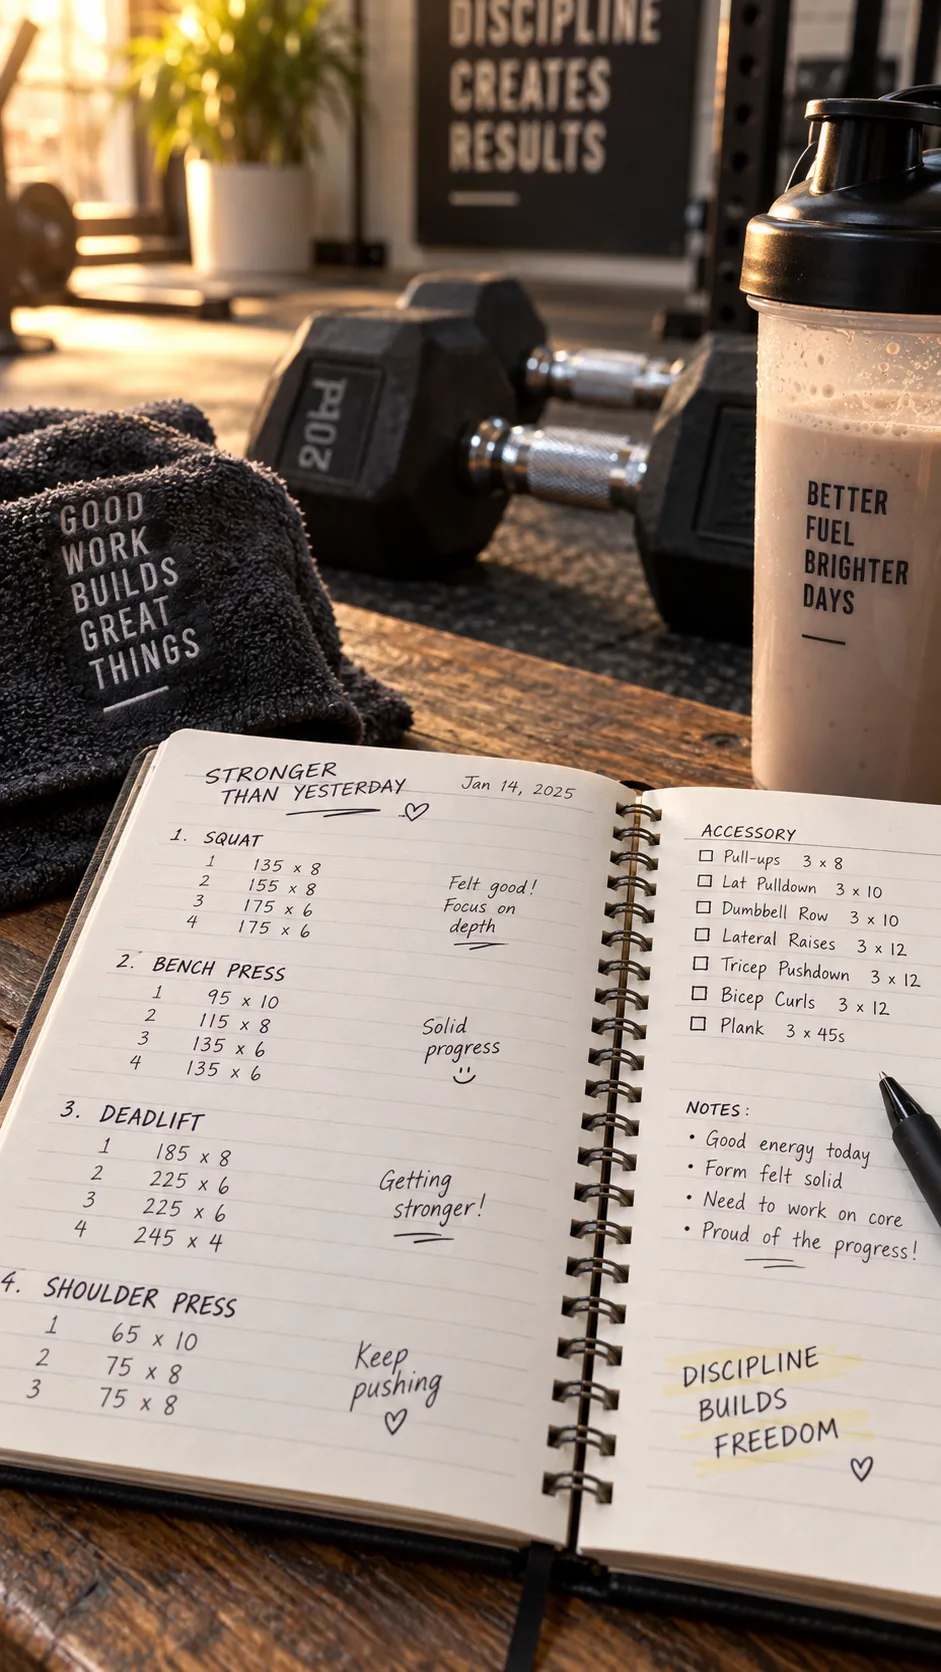 DISCIPLINE
CREATES
RESULTS
GOOD
WORK
BUILDS
GREAT
THINGS
BETTER
FUEL
BRIGHTER
DAYS
STRONGER
THAN YESTERDAY ♡
Jan 14, 2025
1. SQUAT
1 135 x 8
2 155 x 8
3 175 x 6
4 175 x 6
Felt good!
Focus on
depth
2. BENCH PRESS
1 95 x 10
2 115 x 8
3 135 x 6
4 135 x 6
Solid
progress
3. DEADLIFT
1 185 x 8
2 225 x 6
3 225 x 6
4 245 x 4
Getting
stronger!
4. SHOULDER PRESS
1 65 x 10
2 75 x 8
3 75 x 8
Keep
pushing
♡
ACCESSORY
☐ Pull-ups 3 x 8
☐ Lat Pulldown 3 x 10
☐ Dumbbell Row 3 x 10
☐ Lateral Raises 3 x 12
☐ Tricep Pushdown 3 x 12
☐ Bicep Curls 3 x 12
☐ Plank 3 x 45s
NOTES:
• Good energy today
• Form felt solid
• Need to work on core
• Proud of the progress!
DISCIPLINE
BUILDS
FREEDOM
♡